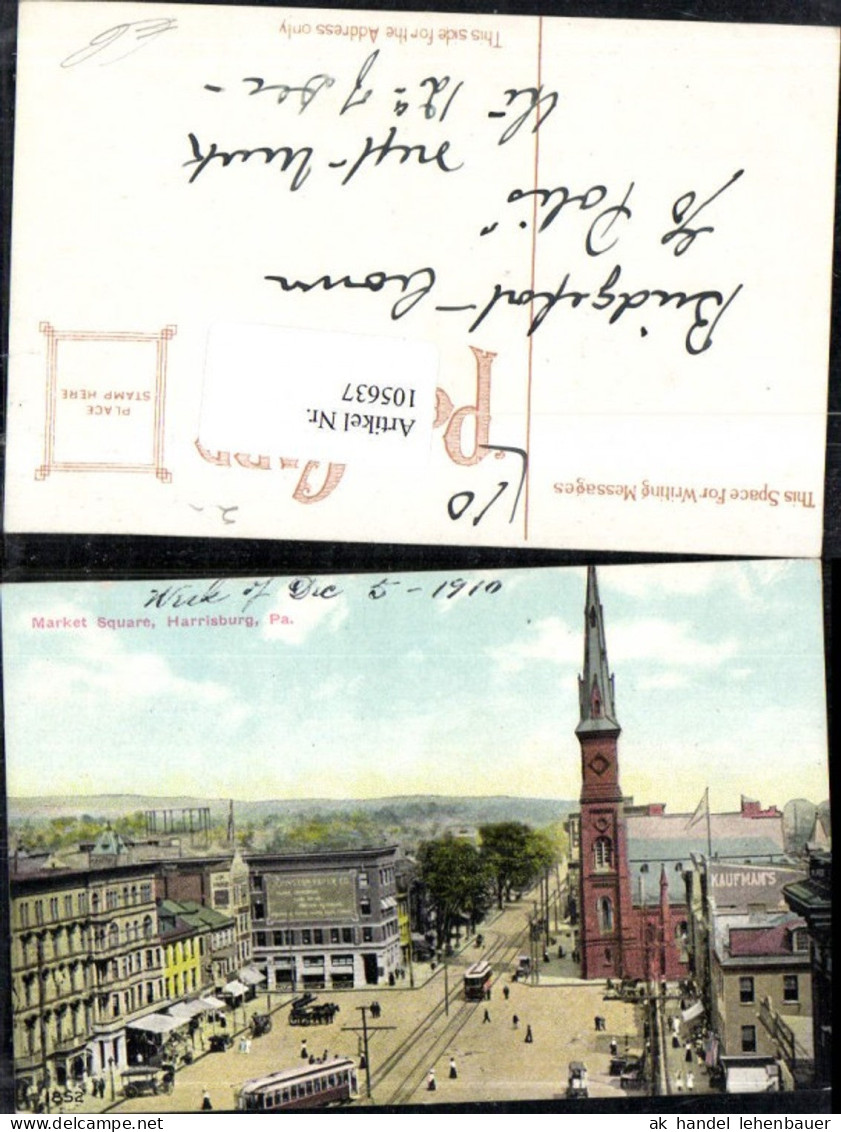 This side for the Address only
This Space For Writing Messages
PLACE
STAMP HERE
Artikel Nr.
105637
Bridgeport - Conn
To Polis
next - week
the 12 - of Dec -
10
Week of Dec 5 - 1910
Market Square, Harrisburg, Pa.
KAUFMAN'S
1852
ak handel lehenbauer